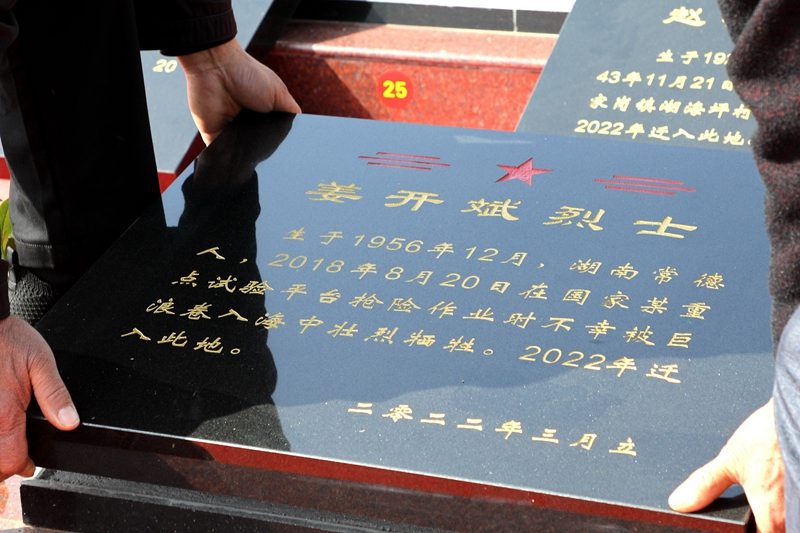 20
25
赵
生于19
43年11月21日
家岗镇湖海坪村
2022年迁入此地
姜开斌烈士
生于1956年12月，湖南常德
人，2018年8月20日在国家某重
点试验平台抢险作业时不幸被巨
浪卷入海中壮烈牺牲。2022年迁
入此地。
二零二二年三月立